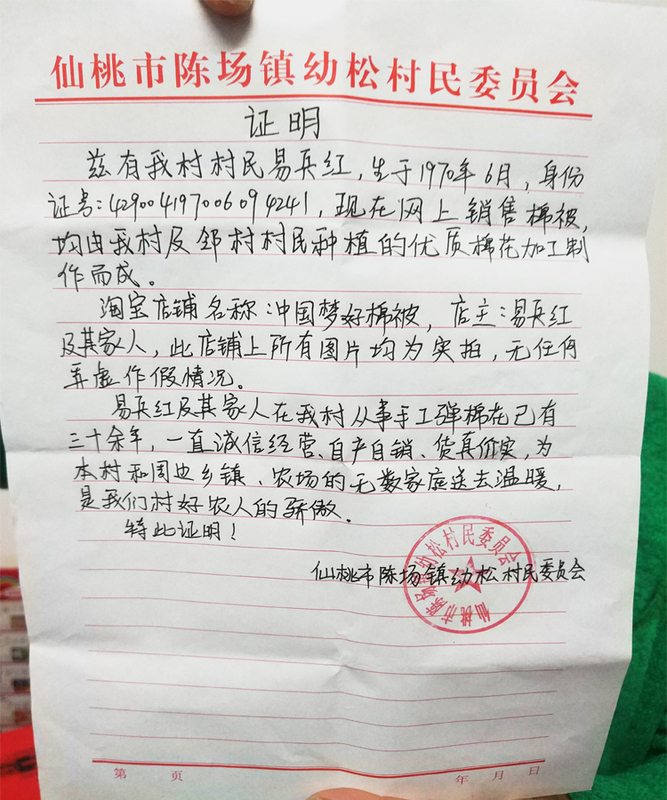 仙桃市陈场镇幼松村民委员会
证明
兹有我村村民易兵红,生于1970年6月,身份
证号:429004197006094241,现在网上销售棉被,
均由我村及邻村村民种植的优质棉花加工制
作而成。
淘宝店铺名称:中国梦好棉被,店主:易兵红
及其家人,此店铺上所有图片均为实拍,无任何
弄虚作假情况。
易兵红及其家人在我村从事手工弹棉花已有
三十余年,一直诚信经营、自产自销、货真价实,为
本村和周边乡镇、农场的无数家庭送去温暖,
是我们村好农人的骄傲。
特此证明!
仙桃市陈场镇幼松村民委员会
仙桃市陈场镇幼松村民委员会
第 页
年 月 日